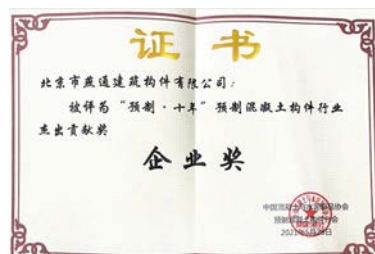 证书
北京市燕通建筑构件有限公司：
被评为“预制·十年”预制混凝土构件行业
杰出贡献奖
企业奖
中国混凝土与水泥制品协会
预制混凝土构件分会
2021年5月28日